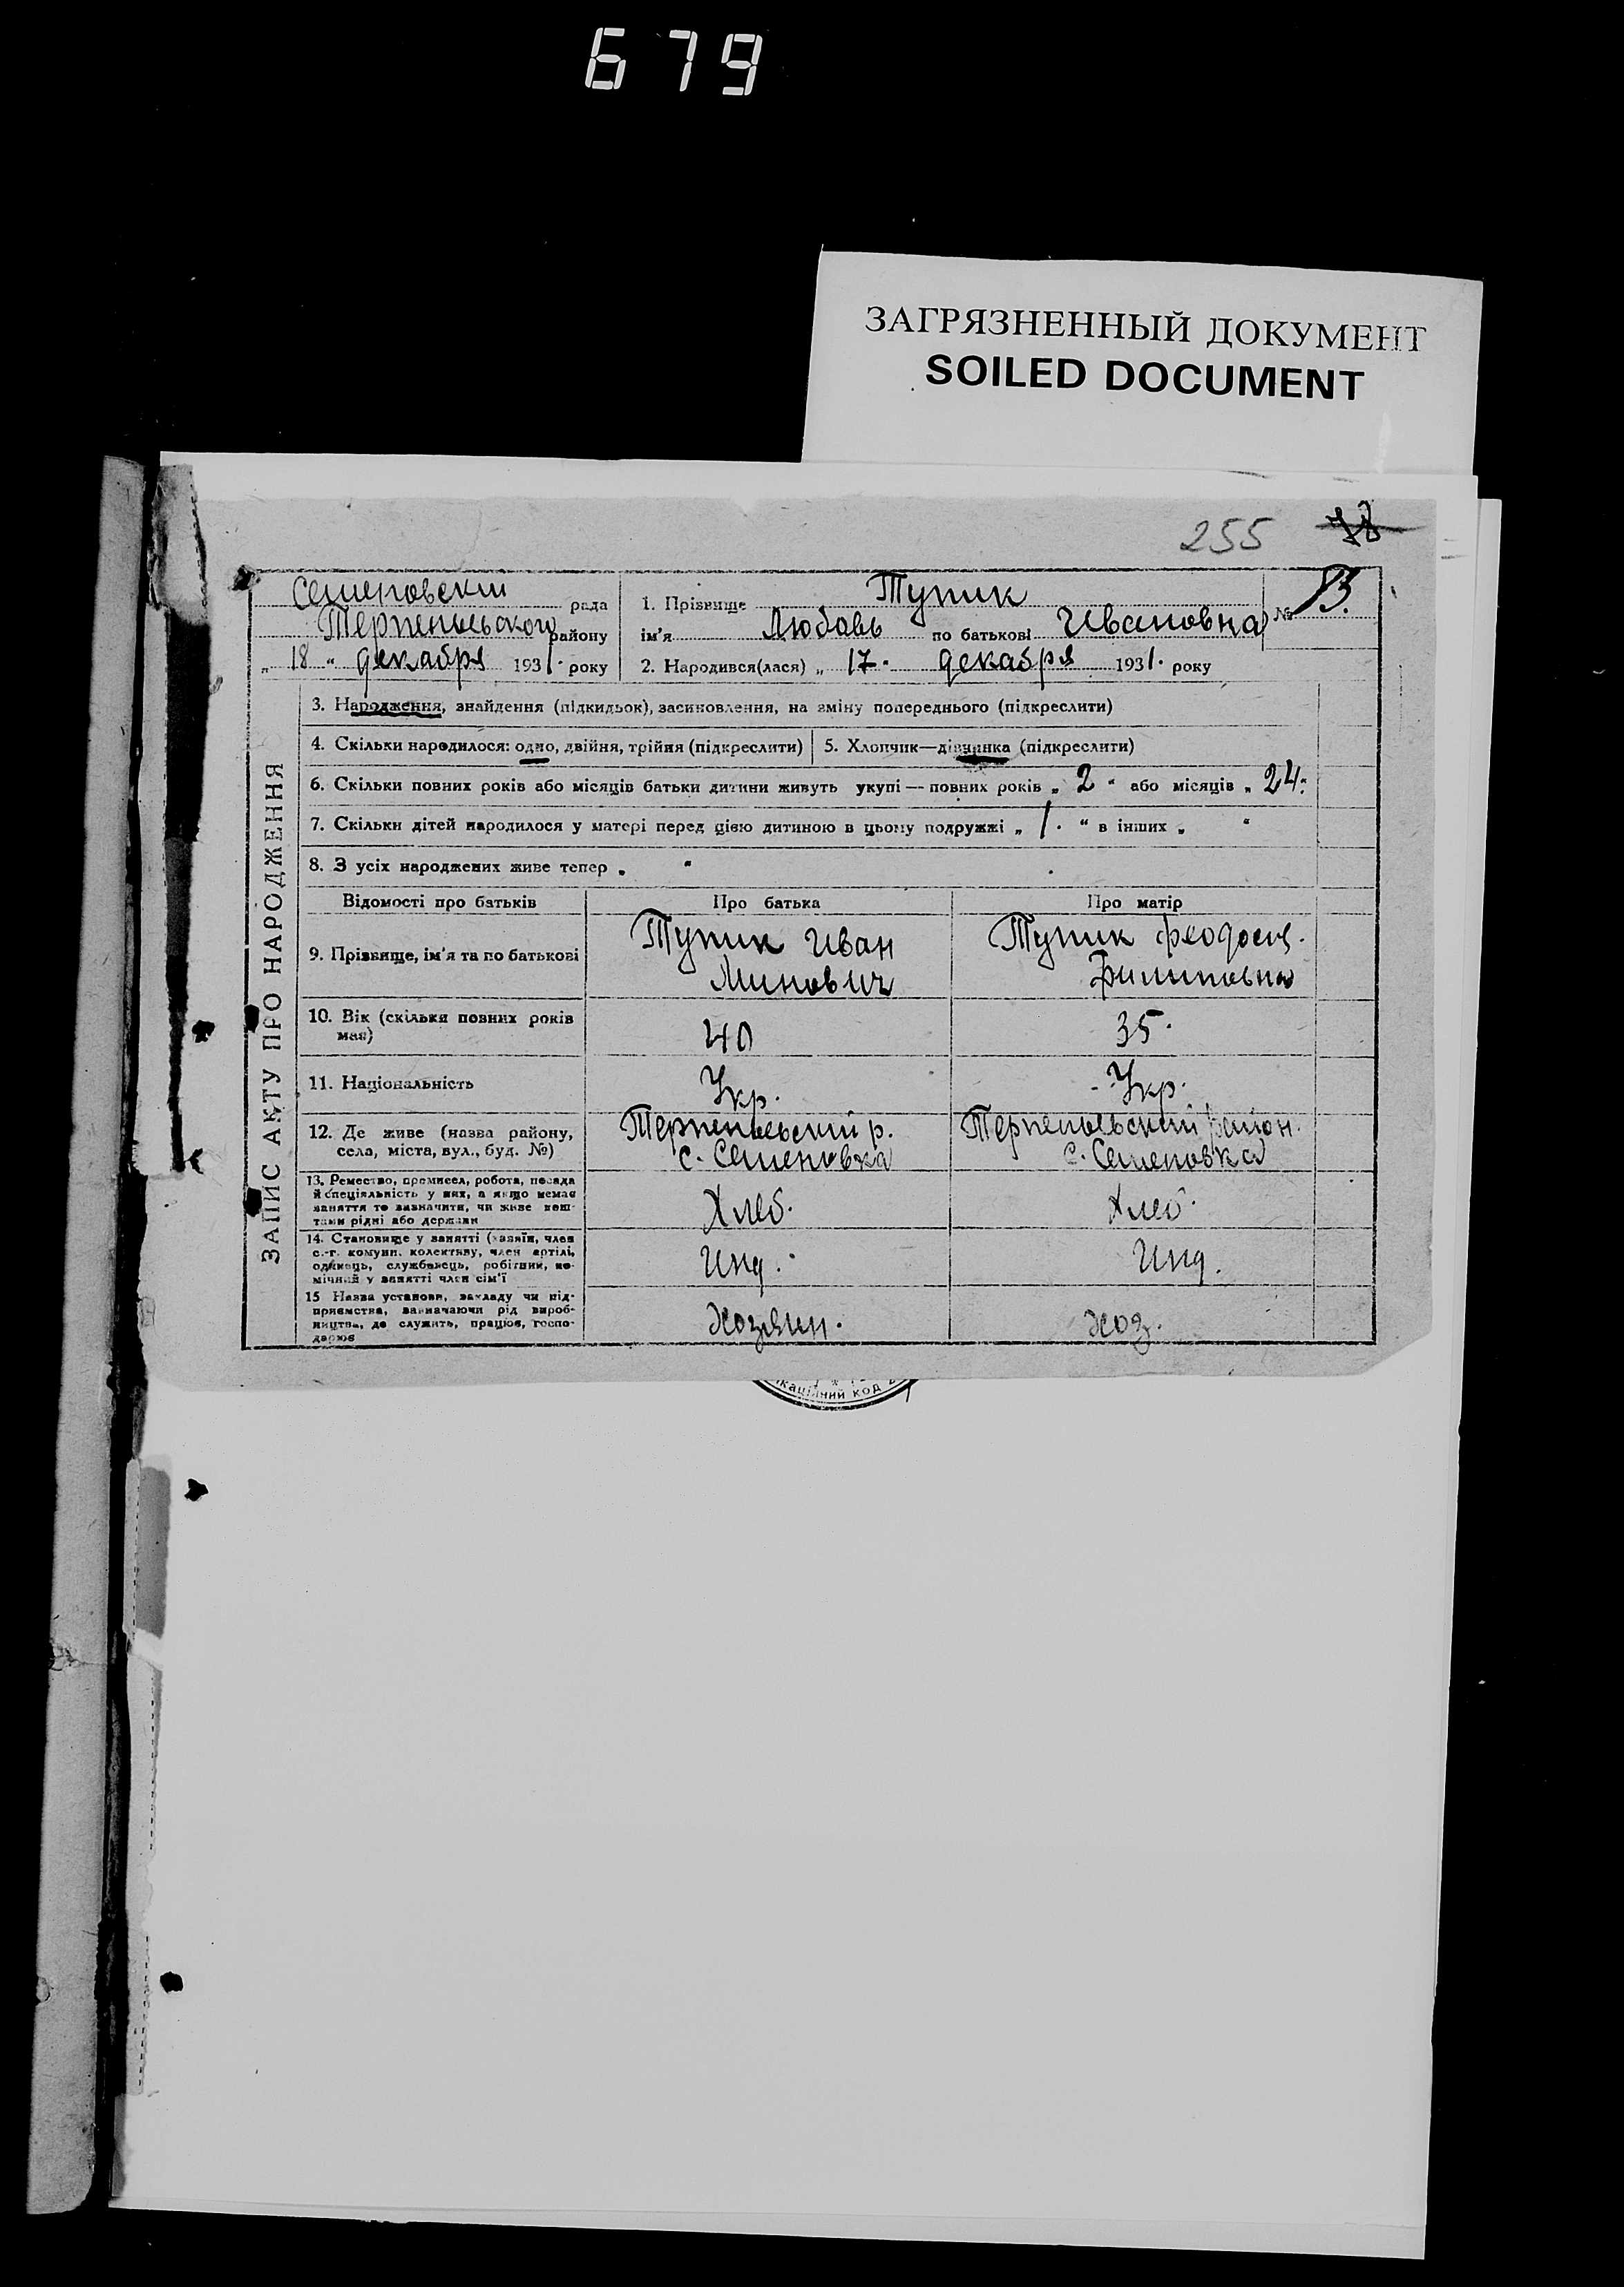 679
ЗАГРЯЗНЕННЫЙ ДОКУМЕНТ
SOILED DOCUMENT
255 78
Семеновский рада
Терпеньевского району
„ 18 “ декабря 1931. року
1. Прізвище Тупик
ім'я Любовь по батькові Ивановна
№ 13.
2. Народився(лася) „ 17. декабря 1931. року
ЗАПИС АКТУ ПРО НАРОДЖЕННЯ
3. Народження, знайдення (підкидьок), засиновлення, на зміну попереднього (підкреслити)
4. Скільки народилося: одно, двійня, трійня (підкреслити) 5. Хлопчик—дівчинка (підкреслити)
6. Скільки повних років або місяців батьки дитини живуть укупі — повних років „ 2 “ або місяців „ 24.
7. Скільки дітей народилося у матері перед цією дитиною в цьому подружжі „ 1. “ в інших „ “
8. З усіх народжених живе тепер „ “
Відомості про батьків Про батька Про матір
9. Прізвище, ім'я та по батькові
Тупик Иван
Минович
Тупик Феодоси.
Филиповна
10. Вік (скільки повних років
має)
40
35.
11. Національність
Укр.
Укр.
12. Де живе (назва району,
села, міста, вул., буд. №)
Терпеньевский р.
с. Семеновка
Терпеньевский район.
с. Семеновка
13. Ремество, промисел, робота, посада
й спеціяльність у них, а якщо немає
заняття то визначити, чи живе кош-
тами рідні або держави
Хлеб.
Хлеб.
14. Становище у занятті (хазяїн, член
с.-г. комуни, колективу, член артілі,
одинець, службовець, робітник, по-
мічний у занятті член сім'ї
Инд.
Инд.
15 Назва установи, закладу чи під-
приємства, зазначаючи рід вироб-
ництва, де служить, працює, госпо-
дарює
Хозяин.
Хоз.
каційний код